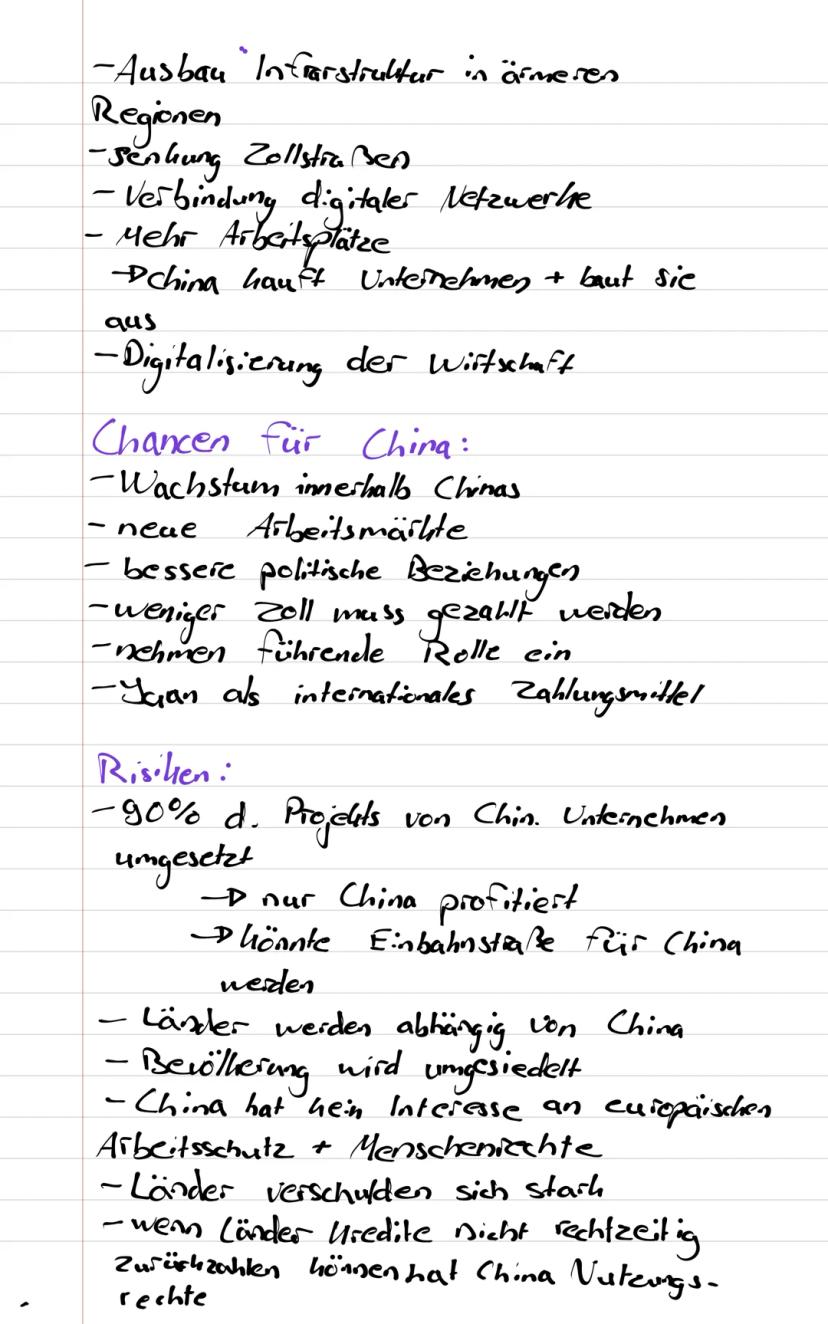 - Ausbau Infrarstruktur in ärmeren
Regionen
- Senkung Zollstraßen
- Verbindung digitaler Netzwerke
- Mehr Arbeitsplätze
→ China kauft Unternehmen + baut sie
aus
- Digitalisierung der Wirtschaft
Chancen für China:
- Wachstum innerhalb Chinas
- neue Arbeitsmärkte
- bessere politische Beziehungen
- weniger Zoll muss gezahlt werden
- nehmen führende Rolle ein
- Yuan als internationales Zahlungsmittel
Risiken:
- 90% d. Projekts von Chin. Unternehmen
umgesetzt
→ nur China profitiert
→ könnte Einbahnstraße für China
werden
- Länder werden abhängig von China
- Bevölkerung wird umgesiedelt
- China hat kein Interesse an europäischen
Arbeitsschutz + Menschenrechte
- Länder verschulden sich stark
- wenn Länder Kredite nicht rechtzeitig
zurückzahlen können hat China Nutzungs-
rechte